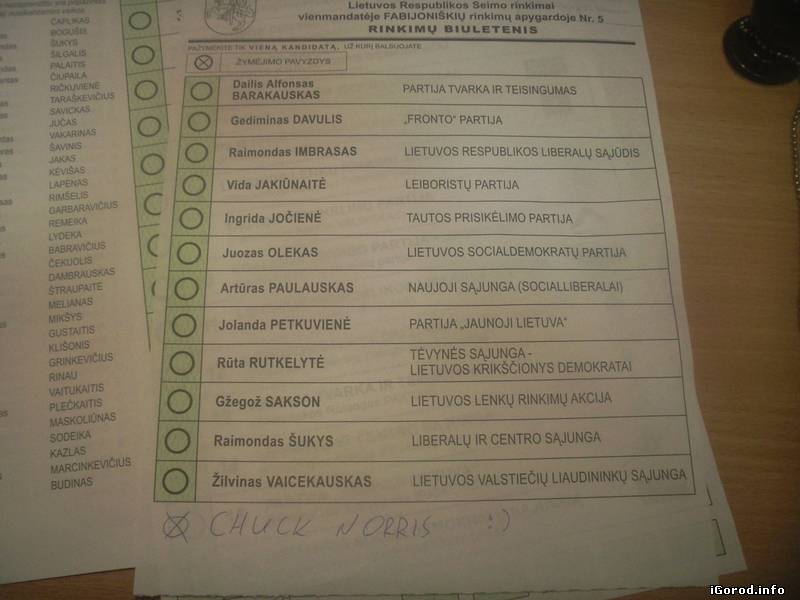 Lietuvos Respublikos Seimo rinkimai
vienmandatėje FABIJONIŠKIŲ rinkimų apygardoje Nr. 5
RINKIMŲ BIULETENIS
PAŽYMĖKITE TIK VIENĄ KANDIDATĄ, UŽ KURĮ BALSUOJATE
ŽYMĖJIMO PAVYZDYS
Dailis Alfonsas
BARAKAUSKAS PARTIJA TVARKA IR TEISINGUMAS
Gediminas DAVULIS „FRONTO“ PARTIJA
Raimondas IMBRASAS LIETUVOS RESPUBLIKOS LIBERALŲ SĄJŪDIS
Vida JAKIŪNAITĖ LEIBORISTŲ PARTIJA
Ingrida JOČIENĖ TAUTOS PRISIKĖLIMO PARTIJA
Juozas OLEKAS LIETUVOS SOCIALDEMOKRATŲ PARTIJA
Artūras PAULAUSKAS NAUJOJI SĄJUNGA (SOCIALLIBERALAI)
Jolanda PETKUVIENĖ PARTIJA „JAUNOJI LIETUVA“
Rūta RUTKELYTĖ TĖVYNĖS SĄJUNGA -
LIETUVOS KRIKŠČIONYS DEMOKRATAI
Gžegož SAKSON LIETUVOS LENKŲ RINKIMŲ AKCIJA
Raimondas ŠUKYS LIBERALŲ IR CENTRO SĄJUNGA
Žilvinas VAICEKAUSKAS LIETUVOS VALSTIEČIŲ LIAUDININKŲ SĄJUNGA
CHUCK NORRIS :)
ČAPLIKAS
BOGUŠIS
ŠUKYS
ŠILGALIS
PALAITIS
ČIUPAILA
RIČKUVIENĖ
TARAŠKEVIČIUS
SAVICKAS
JUČAS
VAKARINAS
ŠAVINIS
JAKAS
KĖVIŠAS
LAPĖNAS
RIMŠELIS
GARBARAVIČIUS
REMEIKA
LYDEKA
BABRAVIČIUS
ČEKUOLIS
DAMBRAUSKAS
ŠTRAUPAITĖ
MELIANAS
MIKŠYS
GUSTAITIS
KLIŠONIS
GRINKEVIČIUS
RINAU
VAITUKAITIS
PLEČKAITIS
MASKOLIŪNAS
SODEIKA
KAZLAS
MARCINKEVIČIUS
BUDINAS
iGorod.info